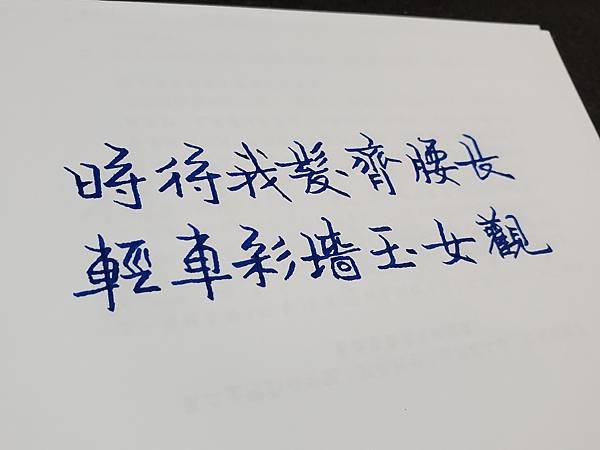 時待我髮齊腰長
輕車彩墻玉女觀